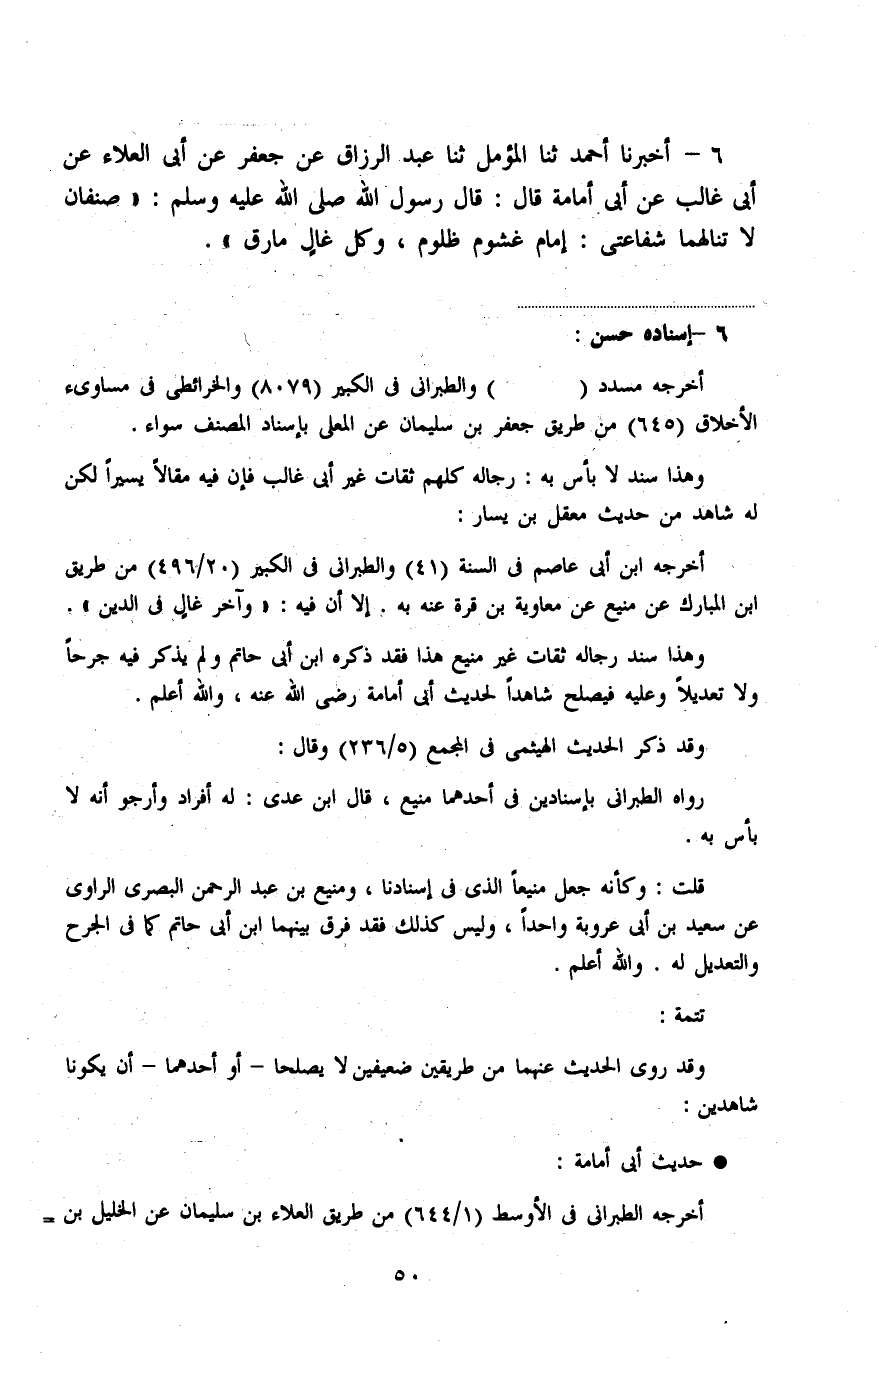 ٦ – أخبرنا أحمد ثنا المؤمل ثنا عبد الرزاق عن جعفر عن أبى العلاء عن
أبى غالب عن أبى أمامة قال : قال رسول الله صلى الله عليه وسلم : « صنفان
لا تنالهما شفاعتى : إمام غشوم ظلوم ، وكل غالٍ مارق » .
٦ –إسناده حسن :
أخرجه مسدد ( ) والطبرانى فى الكبير (٨٠٧٩) والخرائطى فى مساوىء
الأخلاق (٦٤٥) من طريق جعفر بن سليمان عن المعلى بإسناد المصنف سواء .
وهذا سند لا بأس به : رجاله كلهم ثقات غير أبى غالب فإن فيه مقالاً يسيراً لكن
له شاهد من حديث معقل بن يسار :
أخرجه ابن أبى عاصم فى السنة (٤١) والطبرانى فى الكبير (٤٩٦/٢٠) من طريق
ابن المبارك عن منيع عن معاوية بن قرة عنه به . إلا أن فيه : « وآخر غالٍ فى الدين » .
وهذا سند رجاله ثقات غير منيع هذا فقد ذكره ابن أبى حاتم ولم يذكر فيه جرحاً
ولا تعديلاً وعليه فيصلح شاهداً لحديث أبى أمامة رضى الله عنه ، والله أعلم .
وقد ذكر الحديث الهيثمى فى المجمع (٢٣٦/٥) وقال :
رواه الطبرانى بإسنادين فى أحدهما منيع ، قال ابن عدى : له أفراد وأرجو أنه لا
بأس به .
قلت : وكأنه جعل منيعاً الذى فى إسنادنا ، ومنيع بن عبد الرحمن البصرى الراوى
عن سعيد بن أبى عروبة واحداً ، وليس كذلك فقد فرق بينهما ابن أبى حاتم كما فى الجرح
والتعديل له . والله أعلم .
تتمة :
وقد روى الحديث عنهما من طريقين ضعيفين لا يصلحا – أو أحدهما – أن يكونا
شاهدين :
● حديث أبى أمامة :
أخرجه الطبرانى فى الأوسط (٦٤٤/١) من طريق العلاء بن سليمان عن الخليل بن =
٥٠